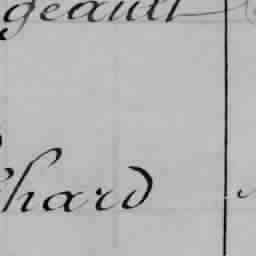 geault
hard